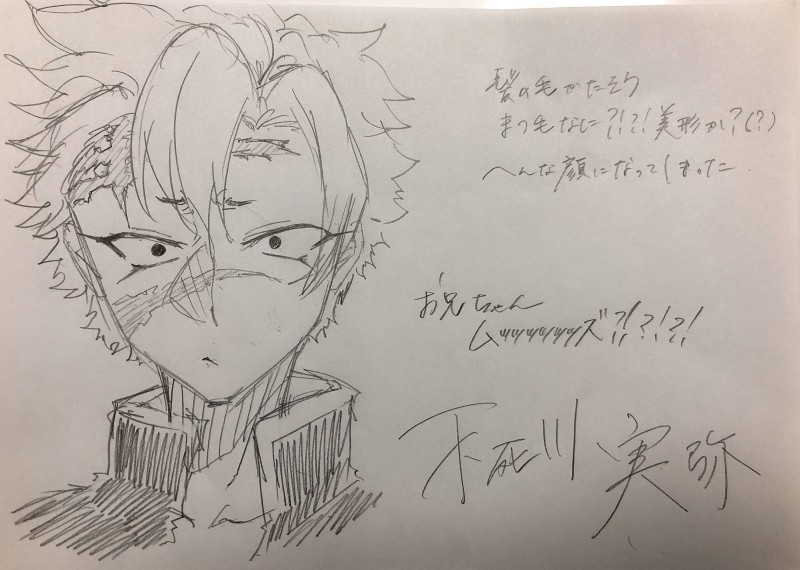 髪の毛かたそう
まつ毛なに?!?!美形かし?(?)
へんな顔になってしまった.
お兄ちゃん
ムッッッッッッズ?!?!?!
不死川 実弥